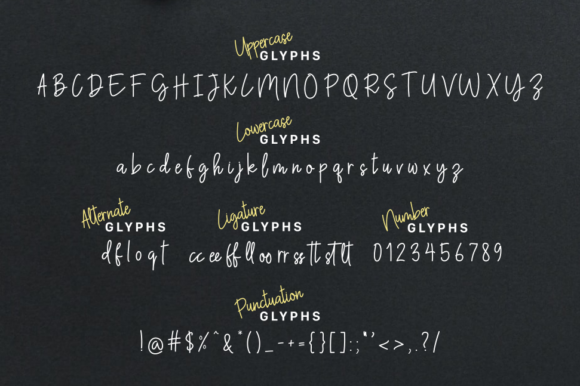 Uppercase
GLYPHS
A B C D E F G H I J K L M N O P Q R S T U V W X Y Z
Lowercase
GLYPHS
a b c d e f g h i j k l m n o p q r s t u v w x y z
Alternate
GLYPHS
d f l o q t
Ligature
GLYPHS
cc ee ff ll oo rr ss tt st lt
Number
GLYPHS
0 1 2 3 4 5 6 7 8 9
Punctuation
GLYPHS
! @ # $ % ^ & * ( ) _ - + = { } [ ] : ; " ' < > , . ? /